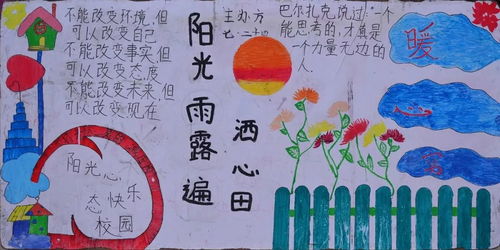 不能改变环境,但
可以改变自己
不能改变事实,但
可以改变态度
不能改变未来,但
可以改变现在
阳光心
态快乐
校园
阳光雨露遍
洒心田
主办方
七.二十四
巴尔扎克说过:一个
能思考的,才真是
一个力量无边的
人.
暖
心
窝